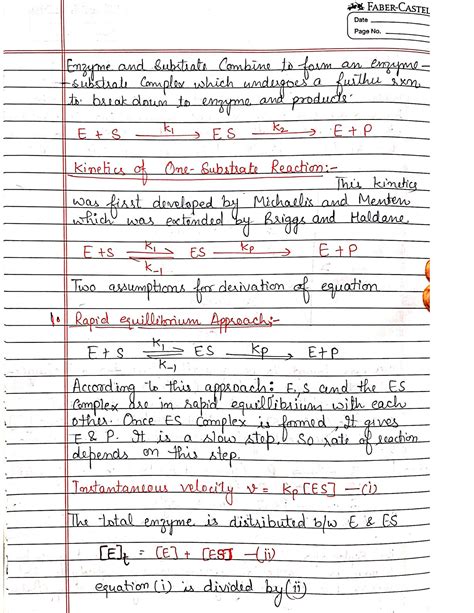 FABER-CASTEL
Date
Page No.
Enzyme and Substrate Combine to form an enzyme-
-substrate Complex which undergoes a further rxn
to break down to enzyme and products.
E + S —k₁→ ES —k₂→ E + P
Kinetics of One-Substrate Reaction:-
This kinetics
was first developed by Michaelis and Menten
which was extended by Briggs and Haldane
E + S ⇌ ES —Kp→ E + P
K₁
K₋₁
Two assumptions for derivation of equation
1. Rapid equillibrium Approach:-
E + S ⇌ ES —Kp→ E+P
K₁
K₋₁
According to this approach: E, S and the ES
Complex are in rapid equillibrium with each
other. Once ES Complex is formed, It gives
E & P. It is a slow step. So rate of reaction
depends on this step.
Instantaneous velocity v = Kp [ES] —(i)
The total enzyme is distributed b/w E & ES
[E]t = [E] + [ES] —(ii)
equation (i) is divided by (ii)